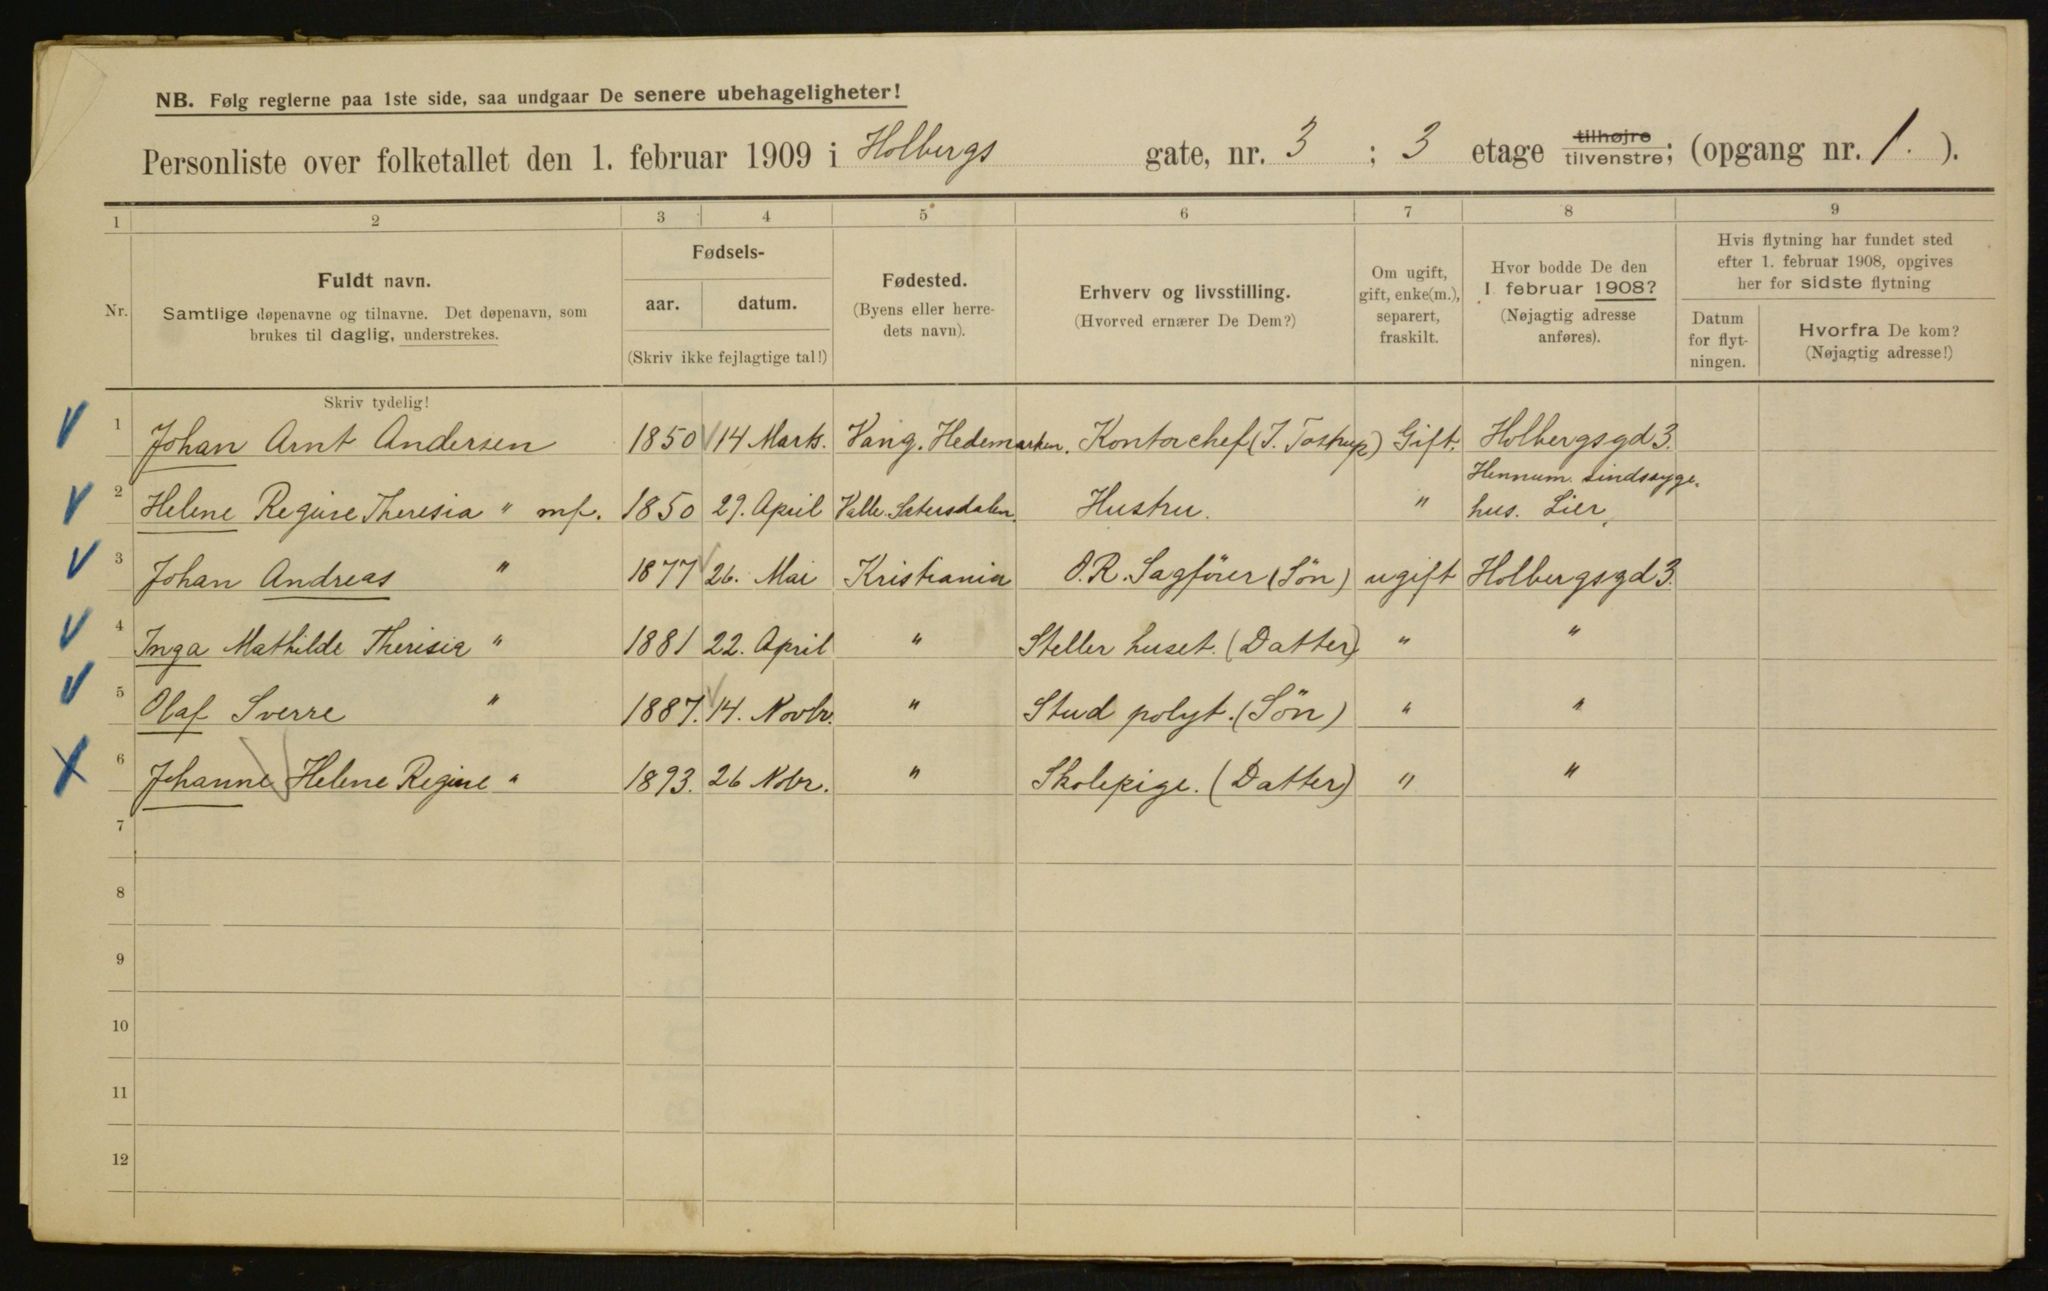 NB. Følg reglerne paa 1ste side, saa undgaar De senere ubehageligheter!
Personliste over folketallet den 1. februar 1909 i Holbergs gate, nr. 3 ; 3 etage tilhøjre tilvenstre; (opgang nr. 1. ).
1 2 3 4 5 6 7 8 9
Nr.
Fuldt navn.
Samtlige døpenavne og tilnavne. Det døpenavn, som
brukes til daglig, understrekes.
Fødsels-
aar. datum.
(Skriv ikke fejlagtige tal!)
Fødested.
(Byens eller herre-
dets navn).
Erhverv og livsstilling.
(Hvorved ernærer De Dem?)
Om ugift,
gift, enke(m.),
separert,
fraskilt.
Hvor bodde De den
1 februar 1908?
(Nøjagtig adresse
anføres).
Hvis flytning har fundet sted
efter 1. februar 1908, opgives
her for sidste flytning
Datum
for flyt-
ningen.
Hvorfra De kom?
(Nøjagtig adresse!)
Skriv tydelig!
1 Johan Arnt Andersen 1850 14 Marts. Vang. Hedemarken. Kontorchef (J. Tostrup) Gift. Holbergsgd 3.
2 Helene Regine Theresia " mf. 1850 29. April Valle. Sætersdalen. Hustru. " Hennum sindssyge-
hus. Lier.
3 Johan Andreas " 1877 26. Mai Kristiania O.R. Sagförer (Sön) ugift Holbergsgd 3.
4 Inga Mathilde Therisia " 1881 22. April " Steller huset. (Datter) " "
5 Olaf Sverre " 1887. 14. Novbr. " Stud polyt. (Sön) " "
6 Johanne Helene Regine " 1893. 26 Nobr. " Skolepige. (Datter) " "
7
8
9
10
11
12